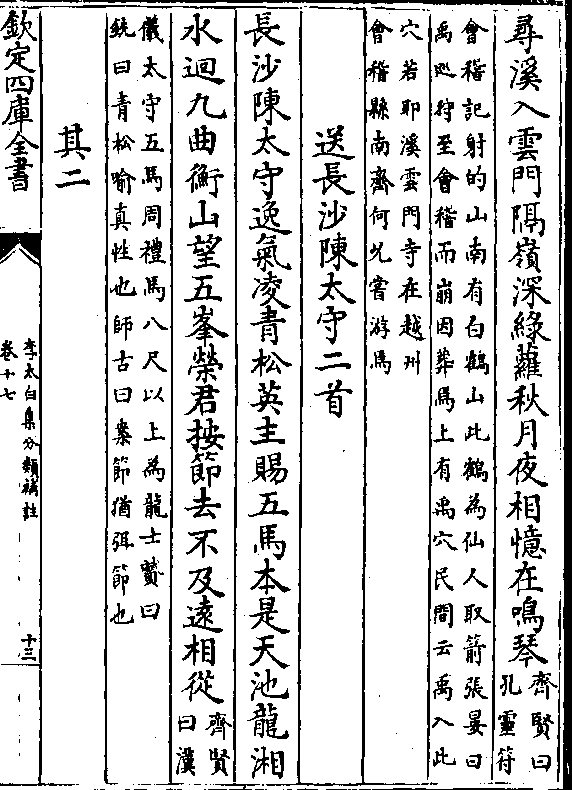 尋溪入雲門隔嶺深綠蘿秋月夜相憶在鳴琴齊賢曰孔靈符
會稽記射的山南有白鶴山此鶴為仙人取箭張晏曰
禹廵狩至會稽而崩因葬焉上有禹穴民間云禹入此
穴若耶溪雲門寺在越州
會稽縣南齊何允嘗游焉
送長沙陳太守二首
長沙陳太守逸氣凌青松英主賜五馬本是天池龍湘
水迴九曲衡山望五峯榮君按節去不及遠相從齊賢曰漢
儀太守五馬周禮馬八尺以上為龍士贇曰
銑曰青松喻真性也師古曰案節猶弭節也
其二
欽定四庫全書
李太白集分類補註
卷十七
十三